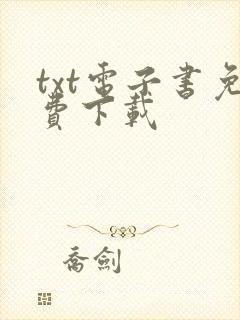 txt電子書免
費下載
喬劍